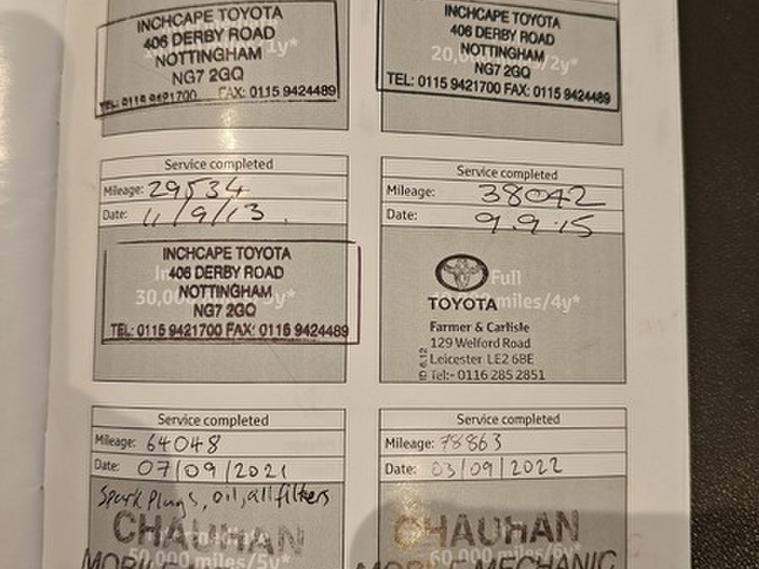 INCHCAPE TOYOTA
406 DERBY ROAD
NOTTINGHAM
1y*
NG7 2GQ
TEL: 0115 9421700 FAX: 0115 9424489
INCHCAPE TOYOTA
406 DERBY ROAD
NOTTINGHAM
20,000 miles/2y*
NG7 2GQ
TEL: 0115 9421700 FAX: 0115 9424489
Service completed
Mileage: 29534
Date: 11/9/13.
INCHCAPE TOYOTA
406 DERBY ROAD
30,000 y*
NOTTINGHAM
NG7 2GQ
TEL: 0115 9421700 FAX: 0115 9424489
Service completed
Mileage: 38042
Date: 9.9.15
Full
miles/4y*
TOYOTA
Farmer & Carlisle
129 Welford Road
Leicester LE2 6BE
Tel:- 0116 285 2851
Service completed
Mileage: 64048
Date: 07/09/2021
Spark Plugs, oil, all filters
CHAUHAN
50,000 miles/5y*
Service completed
Mileage: 78863
Date: 03/09/2022
CHAUHAN
MOBILE MECHANIC
60,000 miles/6y*